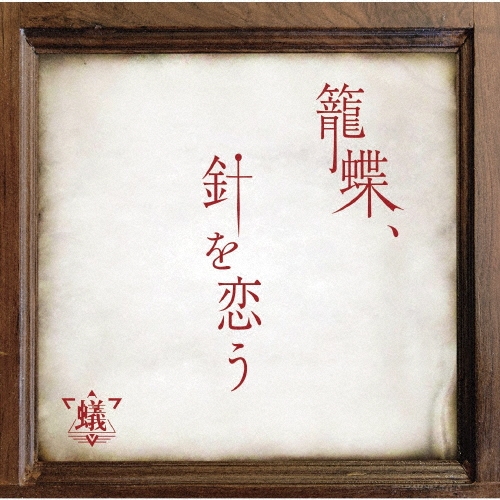 籠蝶、
針を恋う
蟻